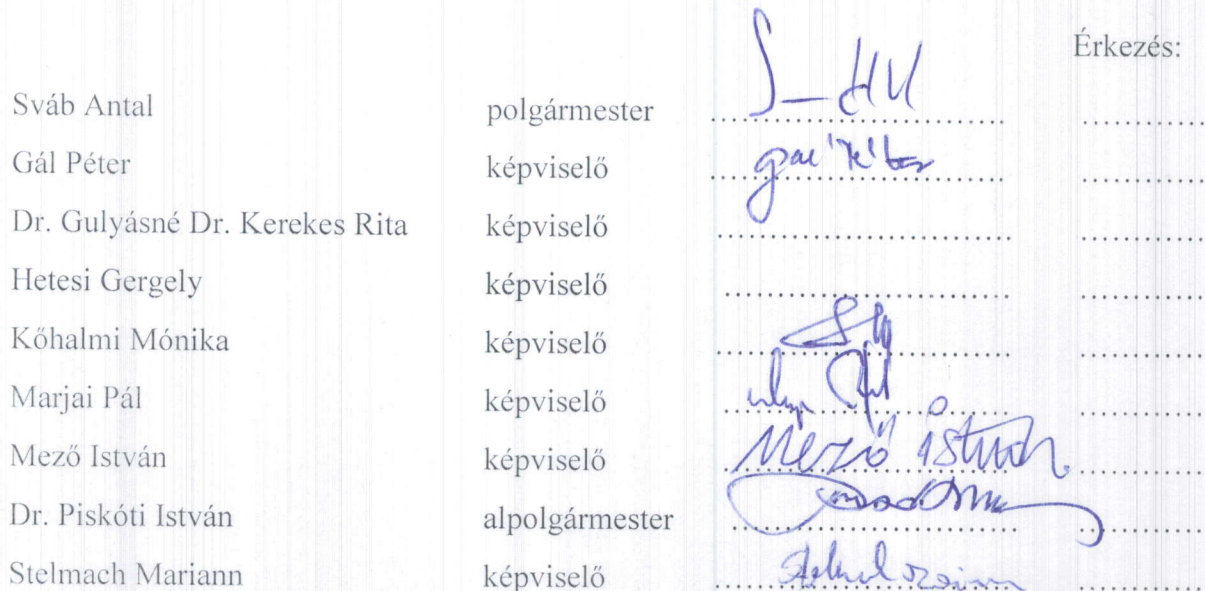 Érkezés:
Sváb Antal polgármester ........................................ ................
Gál Péter képviselő Gál Péter ........................................ ................
Dr. Gulyásné Dr. Kerekes Rita képviselő ........................................ ................
Hetesi Gergely képviselő ........................................ ................
Kőhalmi Mónika képviselő ........................................ ................
Marjai Pál képviselő ........................................ ................
Mező István képviselő Mező István ........................................ ................
Dr. Piskóti István alpolgármester ........................................ ................
Stelmach Mariann képviselő ........................................ ................